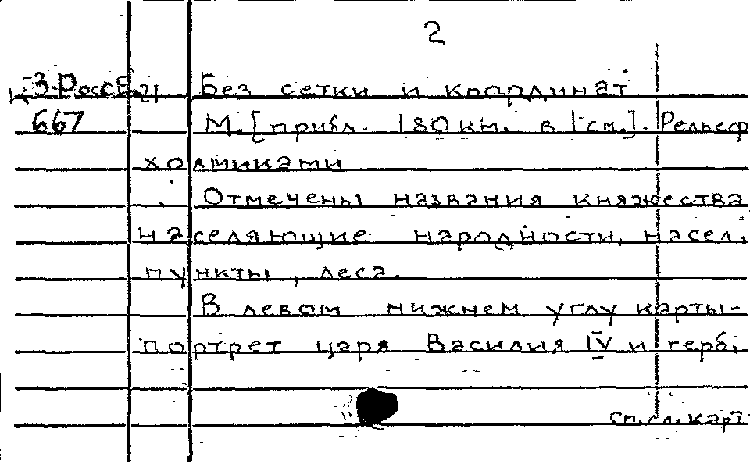 2
Без сетки и координат
667 М. [прибл. 180 км. в 1 см.]. Рельеф
холмиками
Отмечены названия княжества,
населяющие народности, насел.
пункты, леса.
В левом нижнем углу карты-
портрет царя Василия IV и герб.
сп. сл. карт